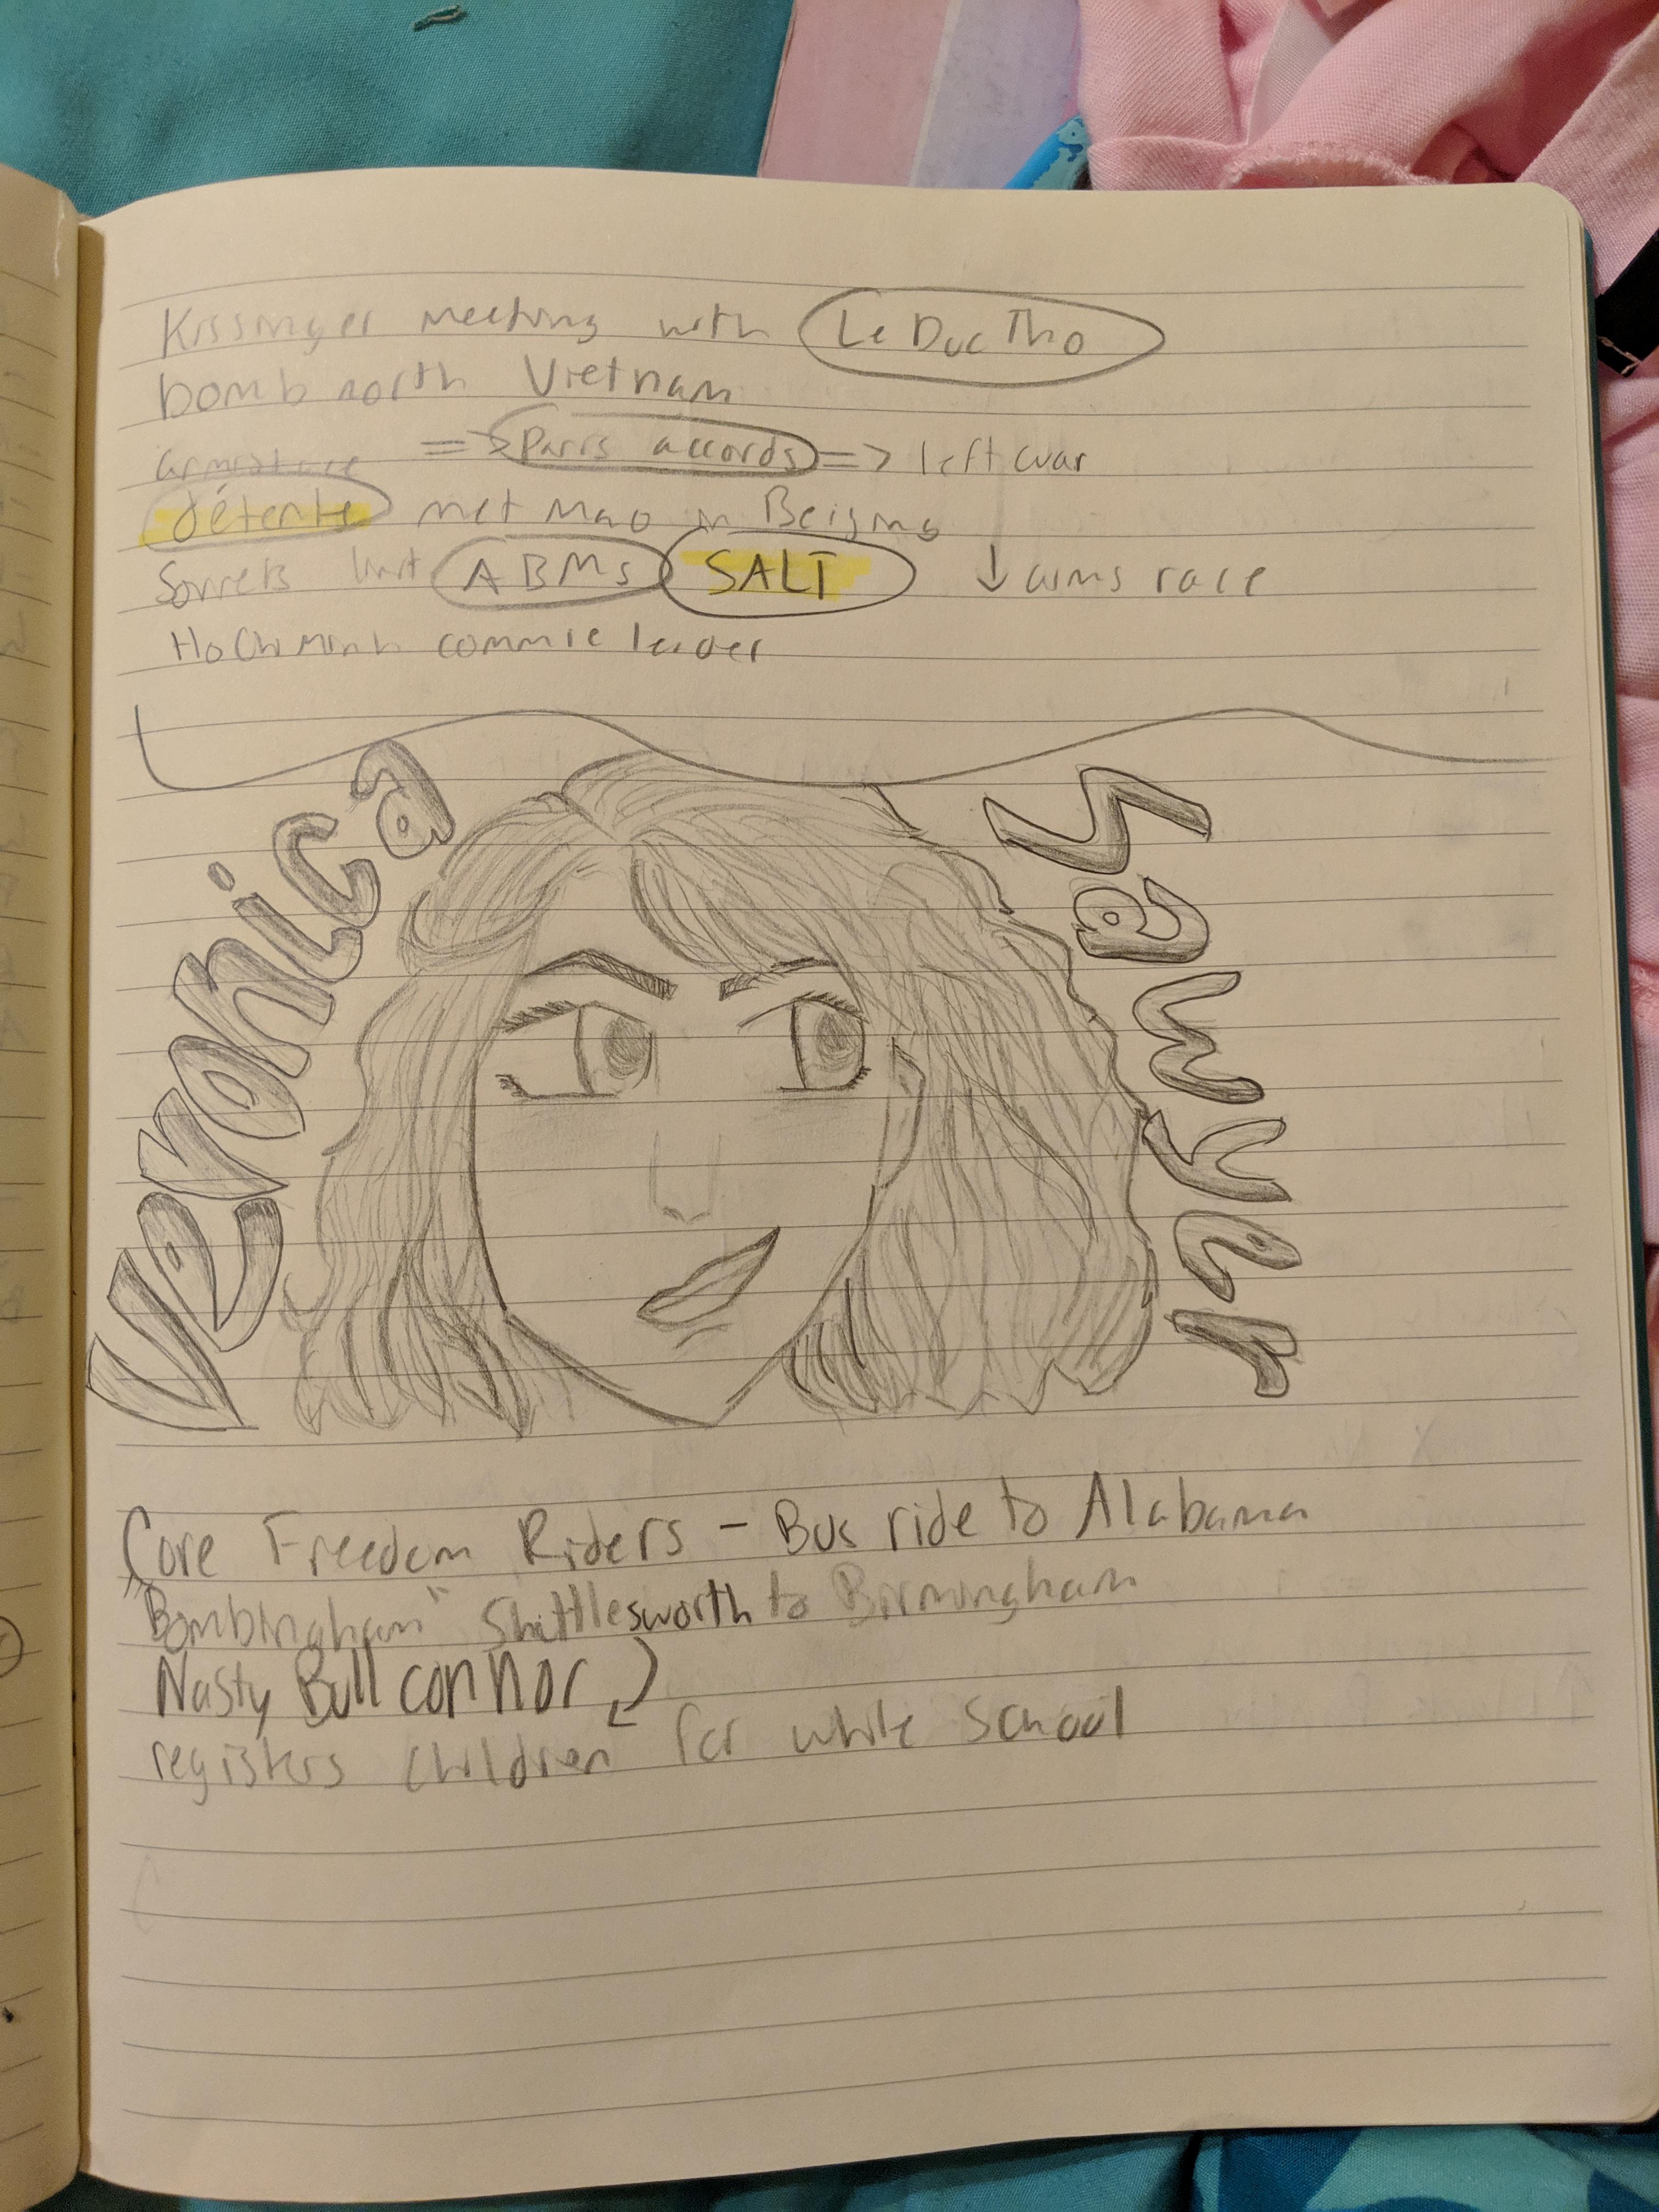 Kissinger meeting with Le Duc Tho
bomb north Vietnam
armistice => Paris accords => left war
détente met Mao in Beijing
Soviets limit ABMs SALT ↓ arms race
Ho Chi Minh commie leader
Veronica
Sawyer
Core Freedom Riders - Bus ride to Alabama
"Bombingham" Shuttlesworth to Birmingham
Nasty Bull connor
registers children for white school